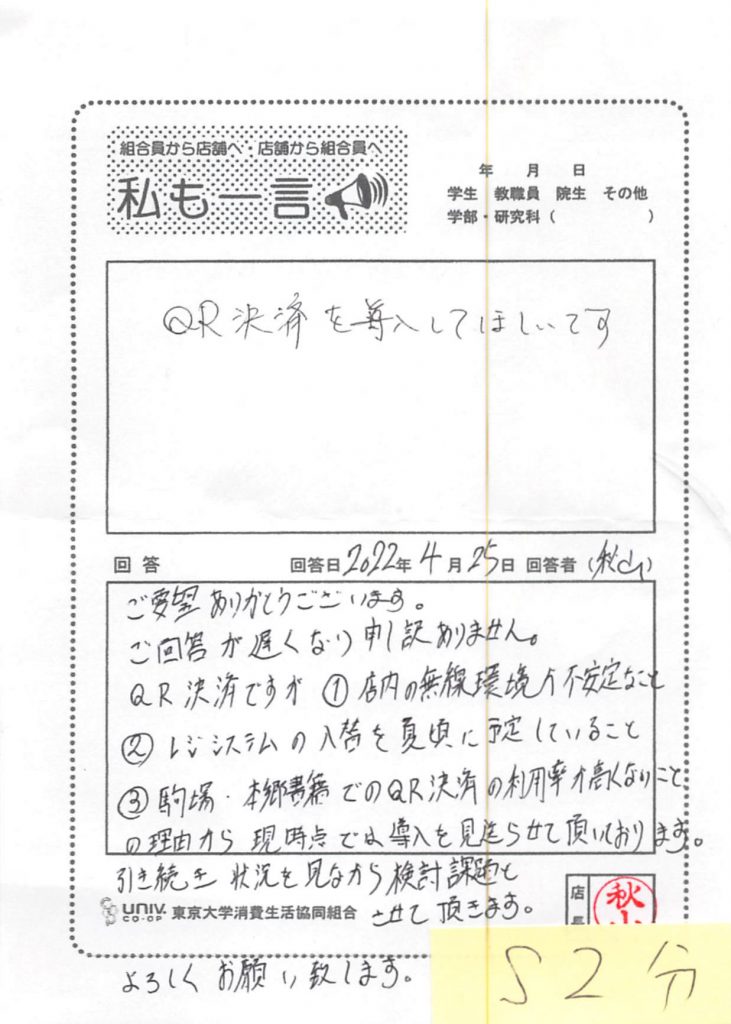 組合員から店舗へ・店舗から組合員へ
私も一言
年 月 日
学生 教職員 院生 その他
学部・研究科（ ）
QR決済を導入してほしいです
回答 回答日2022年4月25日 回答者（秋山）
ご要望ありがとうございます。
ご回答が遅くなり申し訳ありません。
QR決済ですが ①店内の無線環境が不安定なこと
②レジシステムの入替を夏頃に予定していること
③駒場・本郷書籍でのQR決済の利用率が高くないこと
の理由から現時点では導入を見送らせて頂いております。
引き続き状況を見ながら検討課題と
させて頂きます。
UNIV. CO-OP 東京大学消費生活協同組合
店長
秋山
よろしくお願い致します。
S2分